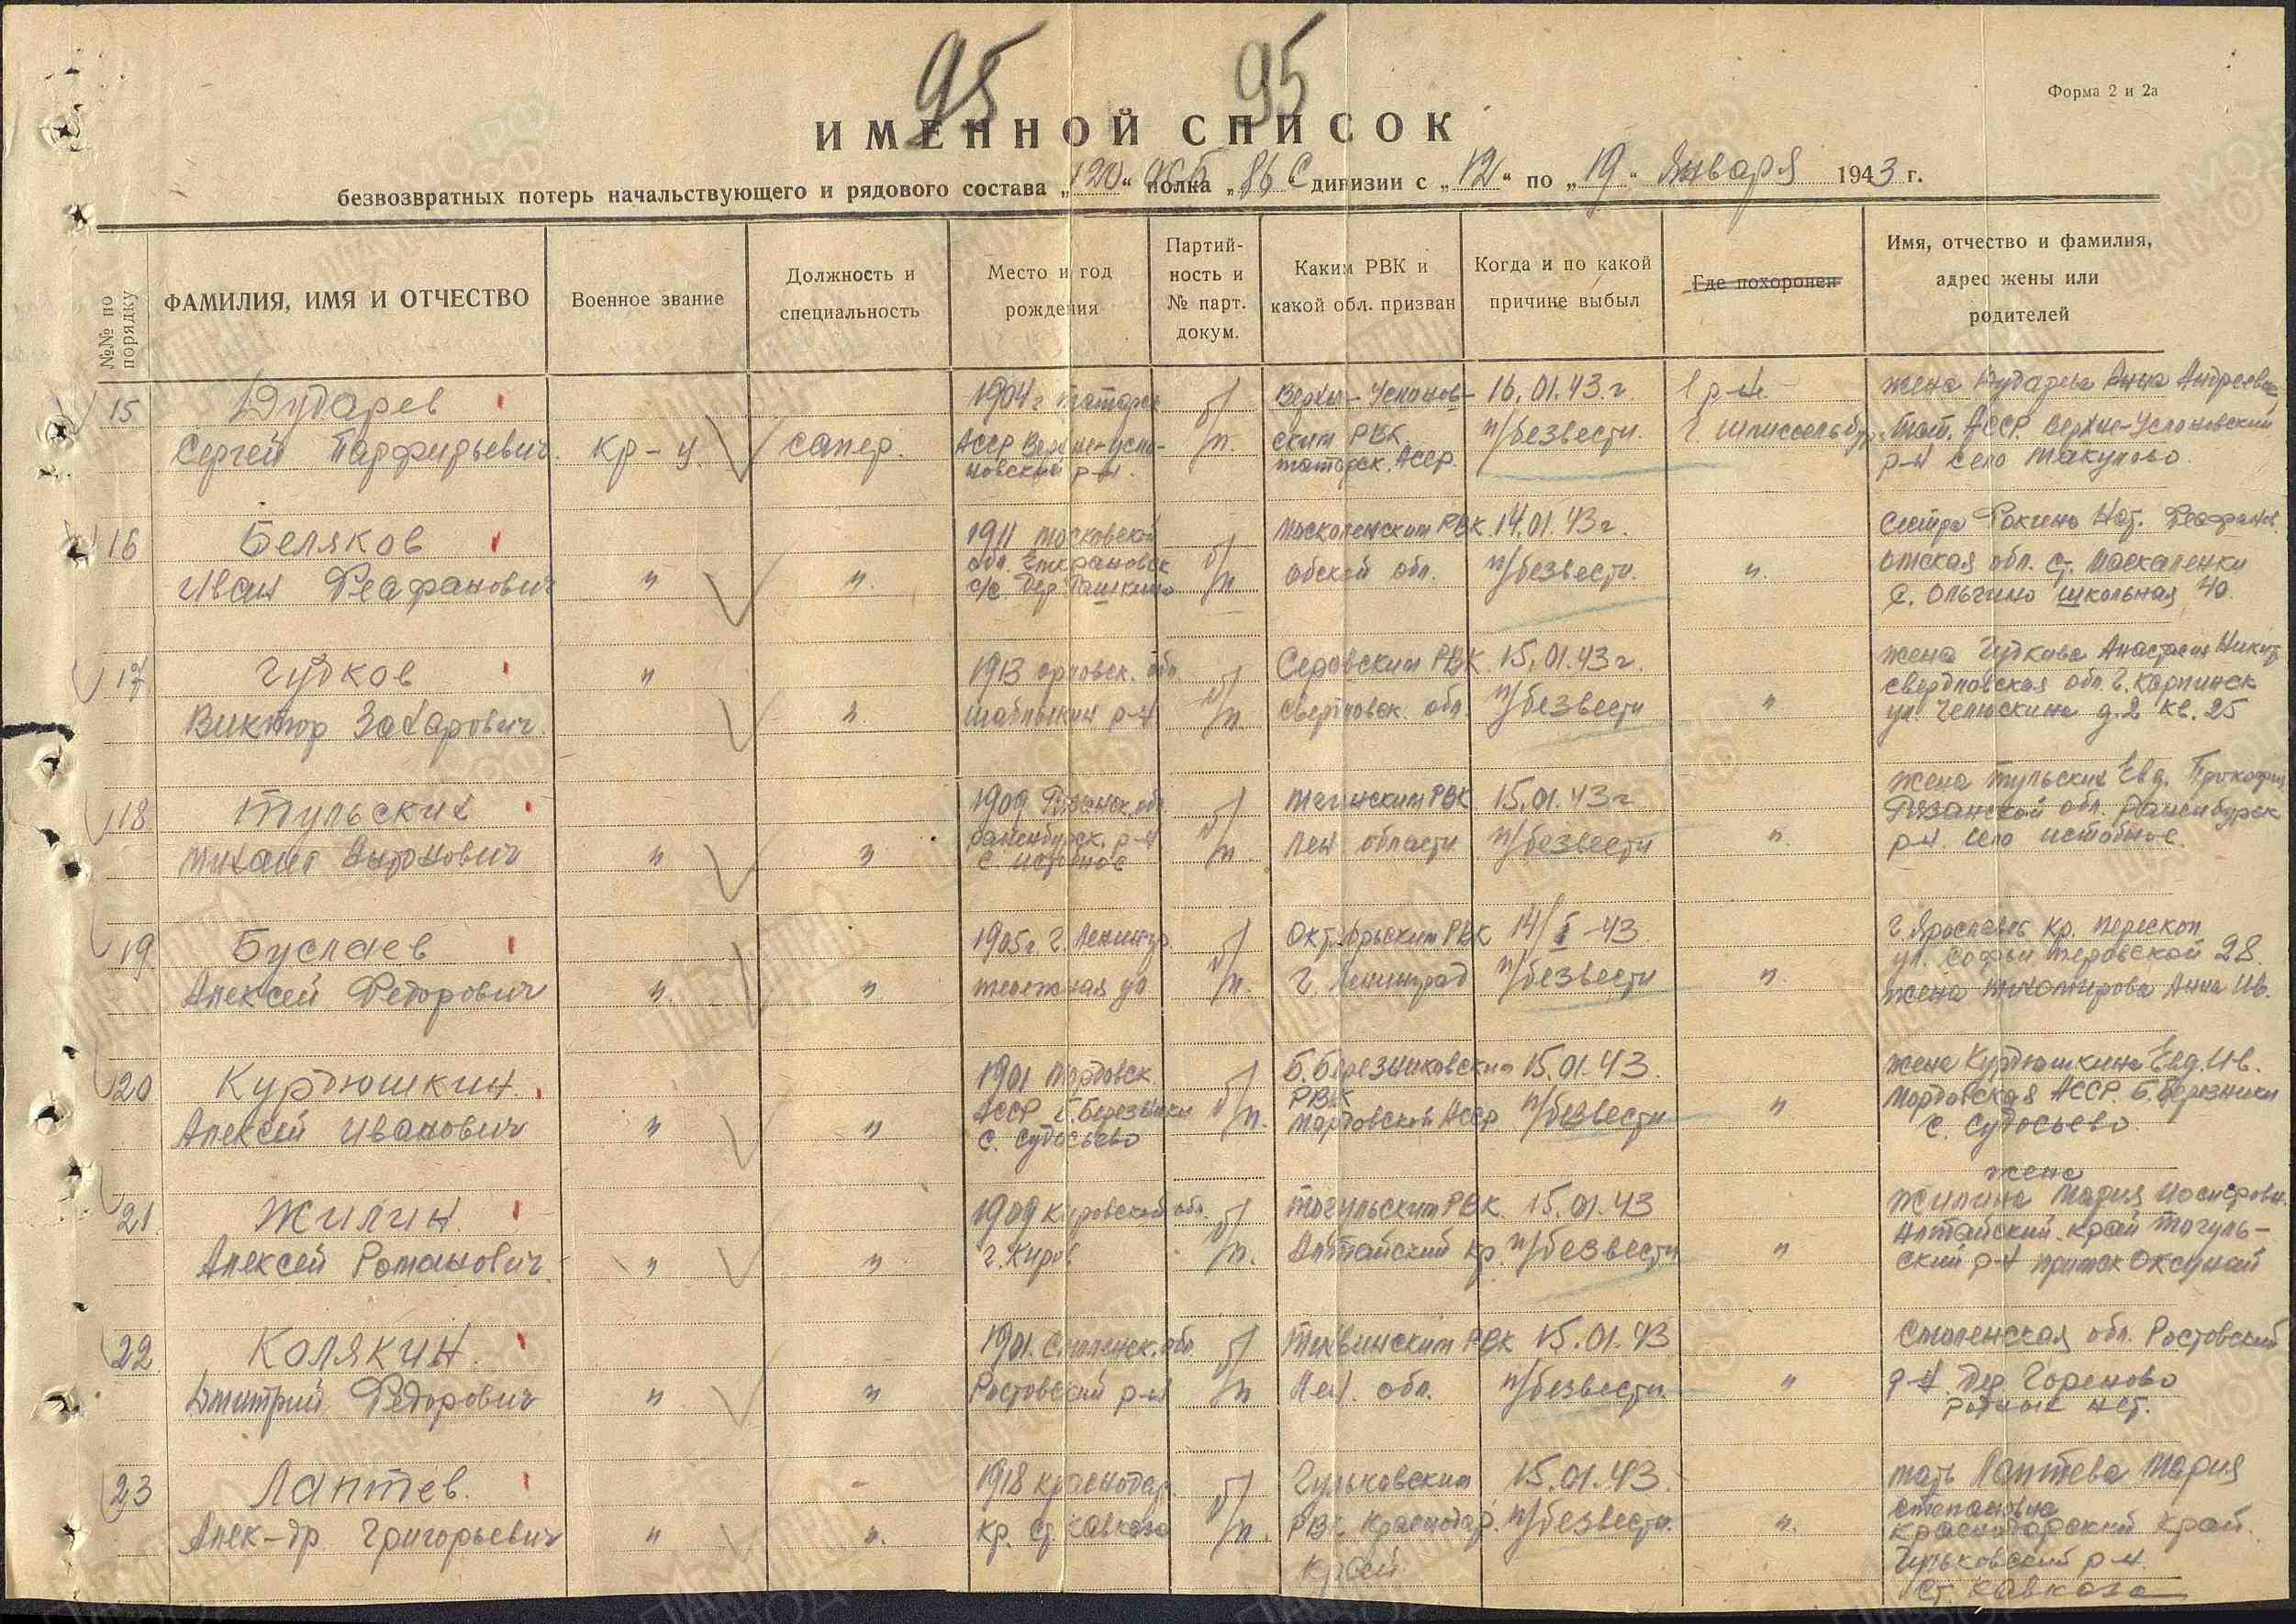 95 95
Форма 2 и 2а
ИМЕННОЙ СПИСОК
безвозвратных потерь начальствующего и рядового состава „120“ осб полка „86 С дивизии с „12“ по „19“ Января 1943 г.
№№ по порядку
ФАМИЛИЯ, ИМЯ И ОТЧЕСТВО
Военное звание
Должность и
специальность
Место и год
рождения
Партий-
ность и
№ парт.
докум.
Каким РВК и
какой обл. призван
Когда и по какой
причине выбыл
Где похоронен
Имя, отчество и фамилия,
адрес жены или
родителей
15
Дударев
Сергей Парфирьевич
кр-ц
сапер.
1904 г. Татарск
АССР Верхне-Усло-
новский р-н.
б/п.
Верхне-Услонов-
ским РВК
татарск. АССР.
16.01.43 г.
п/безвести.
1 р-н.
г. Шлиссельбур
жена Дударева Анна Андреевна
Тат. АССР. Верхне-Услоновский
р-н село Макулово.
16
Беляков
Иван Феафанович
"
".
1911 Московской
обл.
с/с. дер.
б/п
РВК
обл.
14.01.43 г.
п/безвести.
".
Сестра Нат. Феафан.
Омская обл. ст.
с. Ольгино школьная 40.
17
Гудков
Виктор Захарович.
"
".
1913 орловск. обл.
шаблыкин р-н
б/п.
Серовским РВК
свердловск. обл.
15.01.43 г.
п/безвести
"
жена Гудкова Анастасия Никит
свердловская обл. г. Карпинск
ул. Челюскина д. 2 кв. 25
18
Тульских
Михаил Антонович
"
"
1909 Рязанск. обл.
раненбурск. р-н
с. истобное
б/п.
РВК
Лен области
15.01.43 г
п/безвести
".
жена Тульских Евд. Прокофье
Рязанской обл. Раненбурск
р-н. село истобное.
19.
Буслаев
Алексей Федорович
".
"
1905 г. г. Ленингр.
б/п.
Октябрьским РВК
г. Ленинград
14/I-43
п/безвести
"
г. Ярославль кр. перекоп
ул. Софьи Перовской 28.
жена Тихомирова Анна Ив.
20
Курдюшкин.
Алексей Иванович
"
"
1901 Мордовск
АССР Б. Березники
с. Судосьево
б/п.
Б. Березниковским
РВК
Мордовской АССР
15.01.43.
п/безвести
"
жена Курдюшкина Евд. Ив.
Мордовская АССР. Б. Березники
с. Судосьево.
21.
Жилин.
Алексей Романович.
"
"
1909 Кировской обл.
г. Киров
б/п.
Тогульским РВК.
Алтайский кр.
15.01.43
п/безвести
"
жена
Жилина Мария Иосифовн.
Алтайский край Тогуль-
ский р-н
22
Колякин.
Дмитрий Федорович
"
"
1901. Смоленск. обл.
Ростовский р-н
б/п
Тихвинским РВК
Лен. обл.
15.01.43
п/безвести.
"
Смоленская обл. Ростовский
р-н. дер Гореново
родных нет.
23
Лаптев.
Алек-др. Григорьевич
"
".
1918 Краснодар.
кр. ст. Кавказ
б/п.
Гульковским
РВК. Краснодар.
край
15.01.43.
п/безвести.
".
мать Лаптева Мария
Степановна
Краснодарский край.
Гульковский р-н.
ст. Кавказ